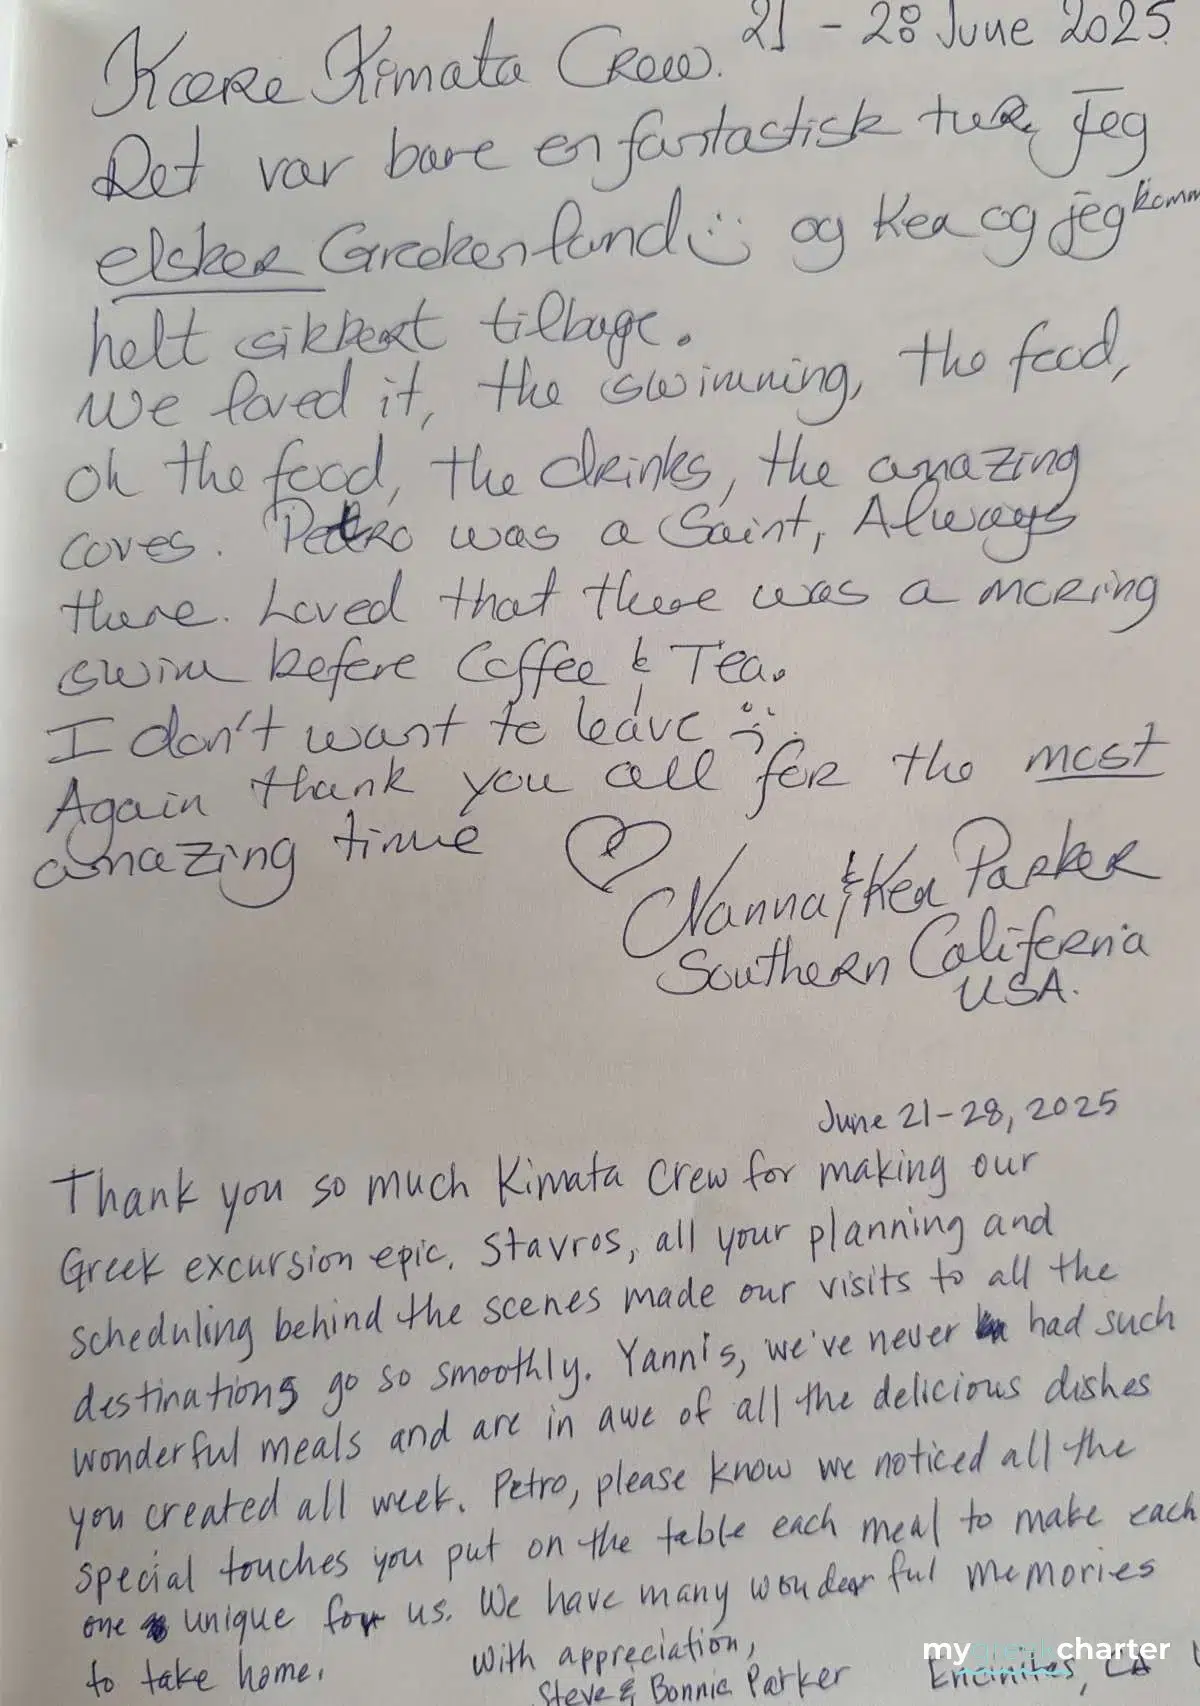 21 - 28 June 2025
Kære Kimata Crew.
Det var bare en fantastisk tur, Jeg
elsker Grækenland og Kea og jeg komm
helt sikkert tilbage.
We loved it, the swimming, the food,
oh the food, the drinks, the amazing
coves. Petro was a Saint, Always
there. Loved that there was a moring
swim before Coffee & Tea.
I don't want to leave
Again thank you all for the most
amazing time
Nanna & Kea Parker
Southern California
USA.
June 21-28, 2025
Thank you so much Kimata Crew for making our
Greek excursion epic. Stavros, all your planning and
scheduling behind the scenes made our visits to all the
destinations go so smoothly. Yannis, we've never had such
wonderful meals and are in awe of all the delicious dishes
you created all week. Petro, please know we noticed all the
special touches you put on the table each meal to make each
one unique for us. We have many wonderful memories
to take home.
With appreciation,
Steve & Bonnie Parker
Encinitas, CA
mygreekcharter